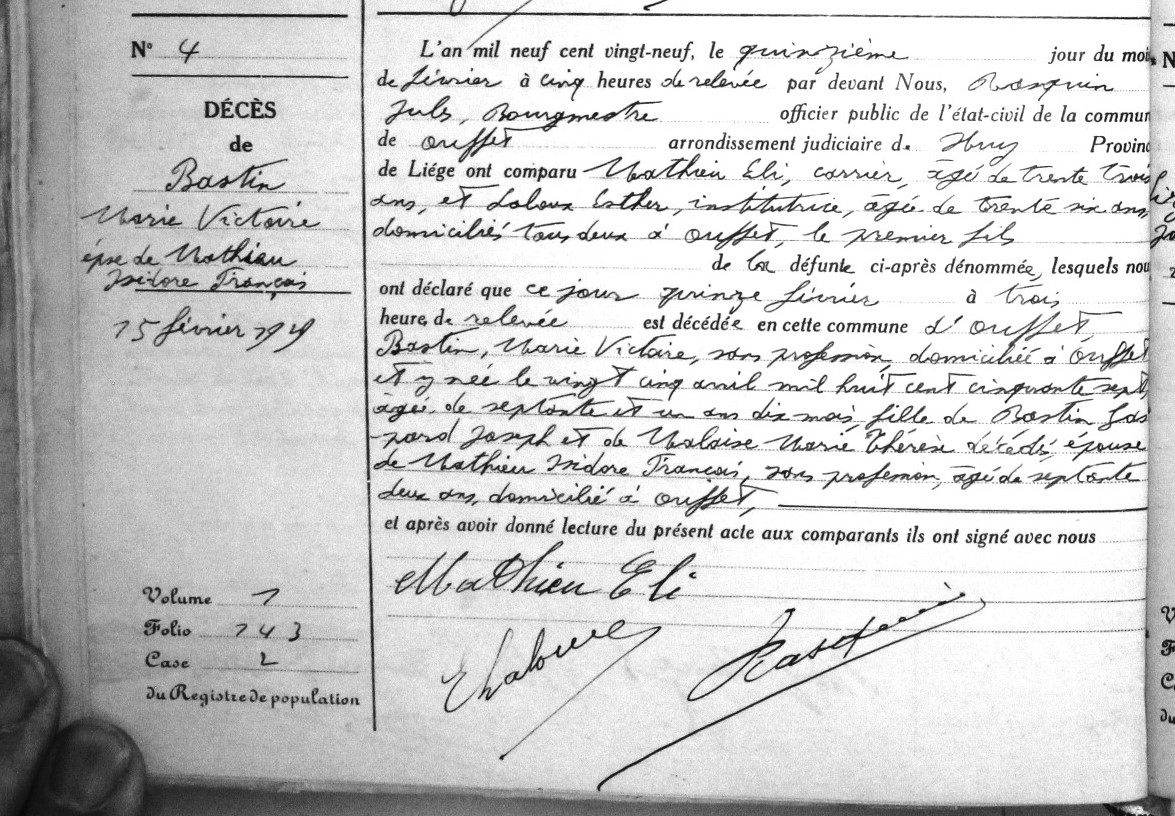 N° 4
DÉCÈS
de
Bastin
Marie Victoire
épse de Mathieu
Isidore François
15 février 1929
Volume 1
Folio 143
Case 2
du Registre de population
L'an mil neuf cent vingt-neuf, le quinzième jour du mois
de février à cinq heures de relevée par devant Nous, Rasquin
Jules, Bourgmestre officier public de l'état-civil de la commun
de Ouffet arrondissement judiciaire de Huy Provinc
de Liége ont comparu Mathieu Eli, carrier, âgé de trente trois
ans, et Laloux Esther, institutrice, âgée de trente six ans,
domiciliés tous deux à Ouffet, le premier fils
de la défunte ci-après dénommée, lesquels nou
ont déclaré que ce jour quinze février à trois
heure, de relevée est décédée en cette commune d'Ouffet
Bastin, Marie Victoire, sans profession, domiciliée à Ouffet
et y née le vingt cinq avril mil huit cent cinquante sept,
âgée de septante et un ans dix mois, fille de Bastin Gas
-pard Joseph et de Malaise Marie Thérèse décédés, épouse
de Mathieu Isidore François, sans profession, âgé de septante
deux ans, domicilié à Ouffet,
et après avoir donné lecture du présent acte aux comparants ils ont signé avec nous
Mathieu Eli
E Laloux
Rasquin